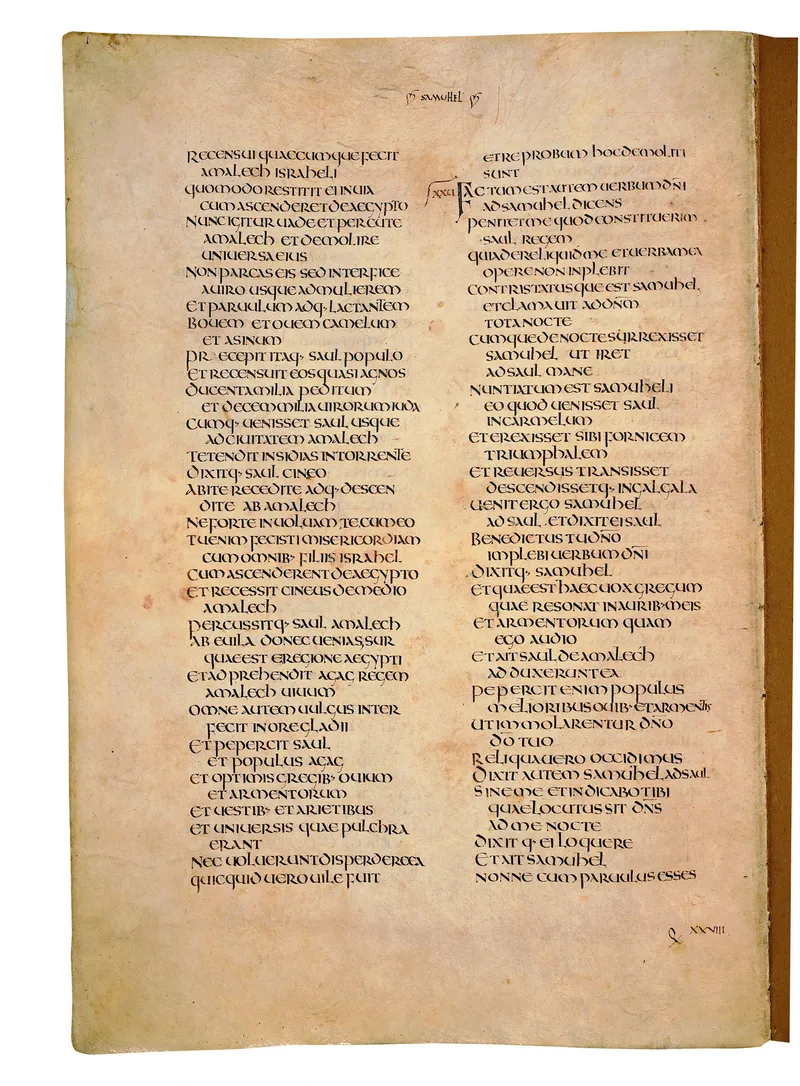 SAMUHEL
RECENSUI QUAECUMQUE FECIT
AMALECH ISRAHELI
QUOMODO RESTITIT EI IN UIA
CUM ASCENDERET DE AEGYPTO
NUNC IGITUR UADE ET PERCUTE
AMALECH ET DEMOLIRE
UNIUERSA EIUS
NON PARCAS EIS SED INTERFICE
A UIRO USQUE AD MULIEREM
ET PARUULUM ADQ· LACTANTEM
BOUEM ET OUEM CAMELUM
ET ASINUM
PRECEPIT ITAQ· SAUL POPULO
ET RECENSUIT EOS QUASI AGNOS
DUCENTA MILIA PEDITUM
ET DECEM MILIA UIRORUM IUDA
CUMQ· UENISSET SAUL USQUE
AD CIUITATEM AMALECH
TETENDIT INSIDIAS IN TORRENTE
DIXITQ· SAUL CINEO
ABITE RECEDITE ADQ· DESCEN
DITE AB AMALECH
NE FORTE INUOLUAM TE CUM EO
TU ENIM FECISTI MISERICORDIAM
CUM OMNIB· FILIIS ISRAHEL
CUM ASCENDERENT DE AEGYPTO
ET RECESSIT CINEUS DE MEDIO
AMALECH
PERCUSSITQ· SAUL AMALECH
AB EUILA DONEC UENIAS SUR
QUAE EST E REGIONE AEGYPTI
ET ADPREHENDIT AGAG REGEM
AMALECH UIUUM
OMNE AUTEM UULGUS INTER
FECIT IN ORE GLADII
ET PEPERCIT SAUL
ET POPULUS AGAG
ET OPTIMIS GREGIB· OUIUM
ET ARMENTORUM
ET UESTIB· ET ARIETIBUS
ET UNIUERSIS QUAE PULCHRA
ERANT
NEC UOLUERUNT DISPERDERE EA
QUICQUID UERO UILE FUIT
ET REPROBUM HOC DEMOLITI
SUNT
XXVI FACTUM EST AUTEM UERBUM DN̄I
AD SAMUHEL DICENS
PENITET ME QUOD CONSTITUERIM
SAUL REGEM
QUIA DERELIQUID ME ET UERBA MEA
OPERE NON INPLEBIT
CONTRISTATUSQUE EST SAMUHEL
ET CLAMAUIT AD DN̄M
TOTA NOCTE
CUMQUE DE NOCTE SURREXISSET
SAMUHEL UT IRET
AD SAUL MANE
NUNTIATUM EST SAMUHELI
EO QUOD UENISSET SAUL
IN CARMELUM
ET EREXISSET SIBI FORNICEM
TRIUMPHALEM
ET REUERSUS TRANSISSET
DESCENDISSETQ· IN GALGALA
UENIT ERGO SAMUHEL
AD SAUL ET DIXIT EI SAUL
BENEDICTUS TU DN̄O
IMPLEBI UERBUM DN̄I
DIXITQ· SAMUHEL
ET QUAE EST HAEC UOX GREGUM
QUAE RESONAT IN AURIB· MEIS
ET ARMENTORUM QUAM
EGO AUDIO
ET AIT SAUL DE AMALECH
ADDUXERUNT EA
PEPERCIT ENIM POPULUS
MELIORIBUS OUIB· ET ARMENTIS
UT IMMOLARENTUR DN̄O
DŌ TUO
RELIQUA UERO OCCIDIMUS
DIXIT AUTEM SAMUHEL AD SAUL
SINE ME ET INDICABO TIBI
QUAE LOCUTUS SIT DN̄S
AD ME NOCTE
DIXITQ· EI LOQUERE
ET AIT SAMUHEL
NONNE CUM PARUULUS ESSES
XXVIII